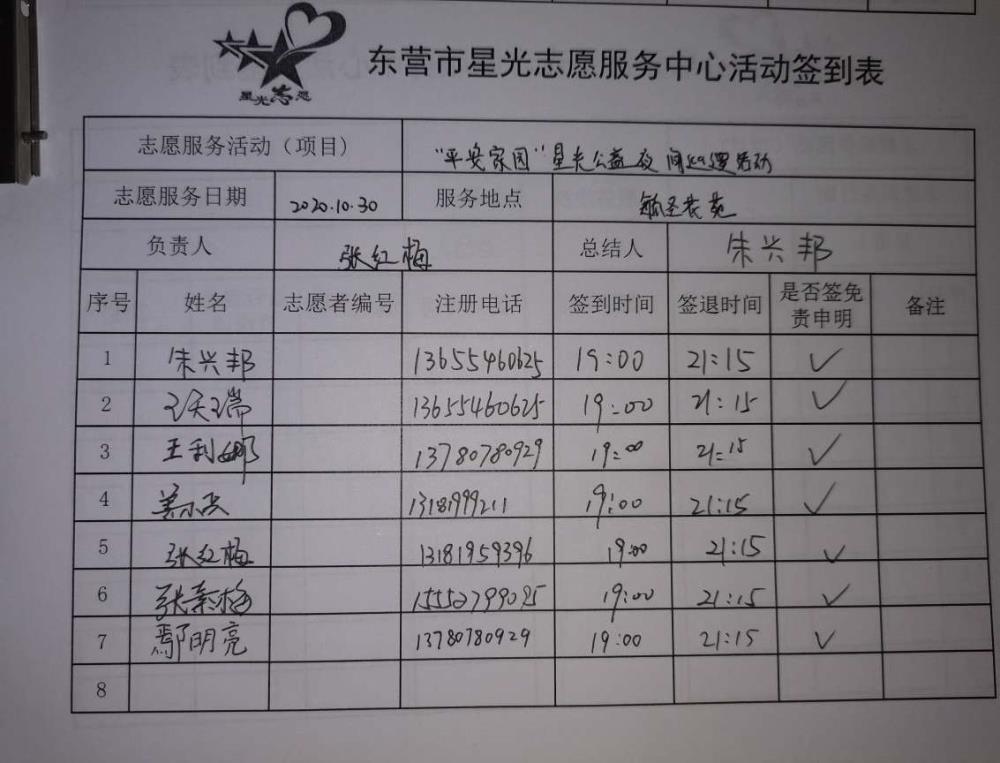 星光志愿
东营市星光志愿服务中心活动签到表
志愿服务活动（项目） "平安家园"星光公益夜间巡逻活动
志愿服务日期 2020.10.30 服务地点 苑
负责人 张红梅 总结人 朱兴邦
序号 姓名 志愿者编号 注册电话 签到时间 签退时间 是否签免责申明 备注
1 朱兴邦 13655460625 19:00 21:15 ✓
2 13655460625 19:00 21:15 ✓
3 王利娜 13780780929 19:00 21:15 ✓
4 13181999211 19:00 21:15 ✓
5 张红梅 13181959396 19:00 21:15 ✓
6 张 梅 19:00 21:15 ✓
7 鄢明亮 13780780929 19:00 21:15 ✓
8